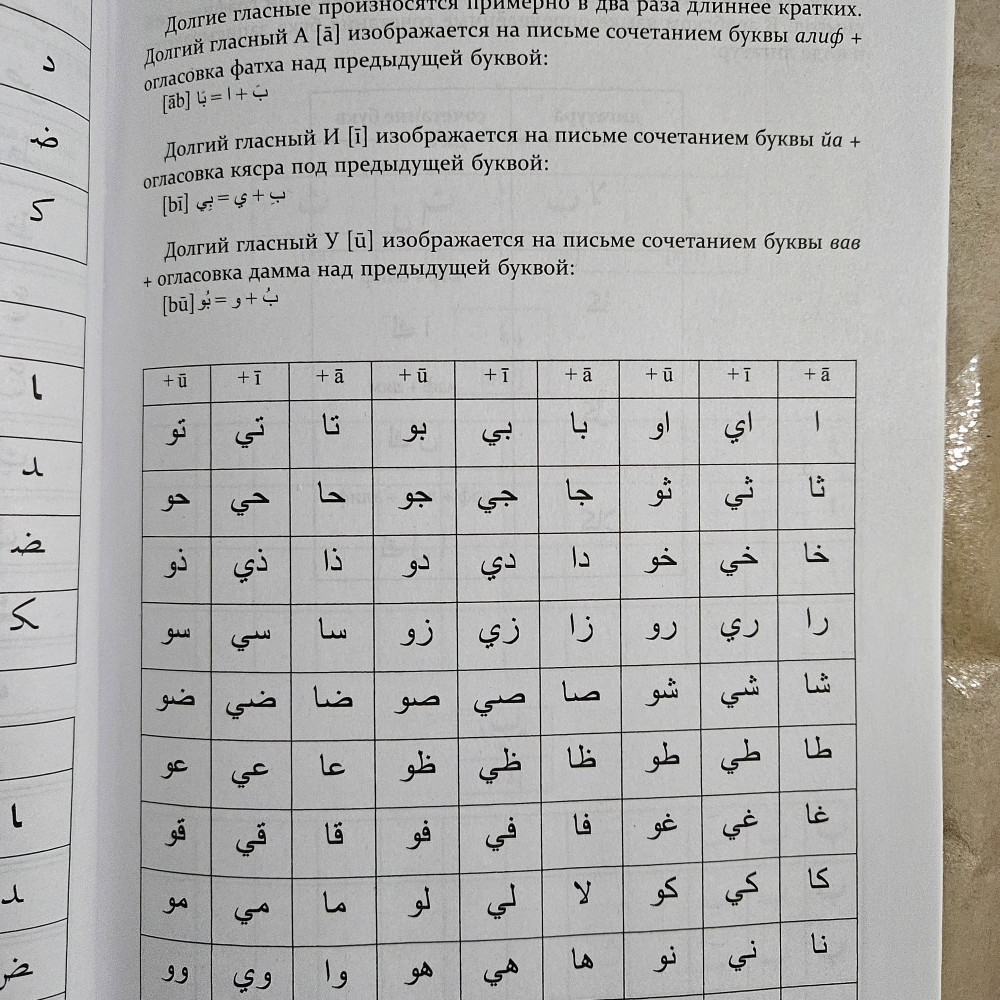 د
ضـ
كـ
ـا
ـد
ـضـ
ـكـ
ـا
ـد
ـض
Долгие гласные произносятся примерно в два раза длиннее кратких.
Долгий гласный А [ā] изображается на письме сочетанием буквы алиф +
огласовка фатха над предыдущей буквой:
[āb] بَ + ا = بَا
Долгий гласный И [ī] изображается на письме сочетанием буквы йа +
огласовка кясра под предыдущей буквой:
[bī] بِ + ي = بِي
Долгий гласный У [ū] изображается на письме сочетанием буквы вав
+ огласовка дамма над предыдущей буквой:
[bū] بُ + و = بُو
+ ū + ī + ā + ū + ī + ā + ū + ī + ā
ا اي او با بي بو تا تي تو
ثا ثي ثو جا جي جو حا حي حو
خا خي خو دا دي دو ذا ذي ذو
را ري رو زا زي زو سا سي سو
شا شي شو صا صي صو ضا ضي ضو
طا طي طو ظا ظي ظو عا عي عو
غا غي غو فا في فو قا قي قو
كا كي كو لا لي لو ما مي مو
نا ني نو ها هي هو وا وي وو